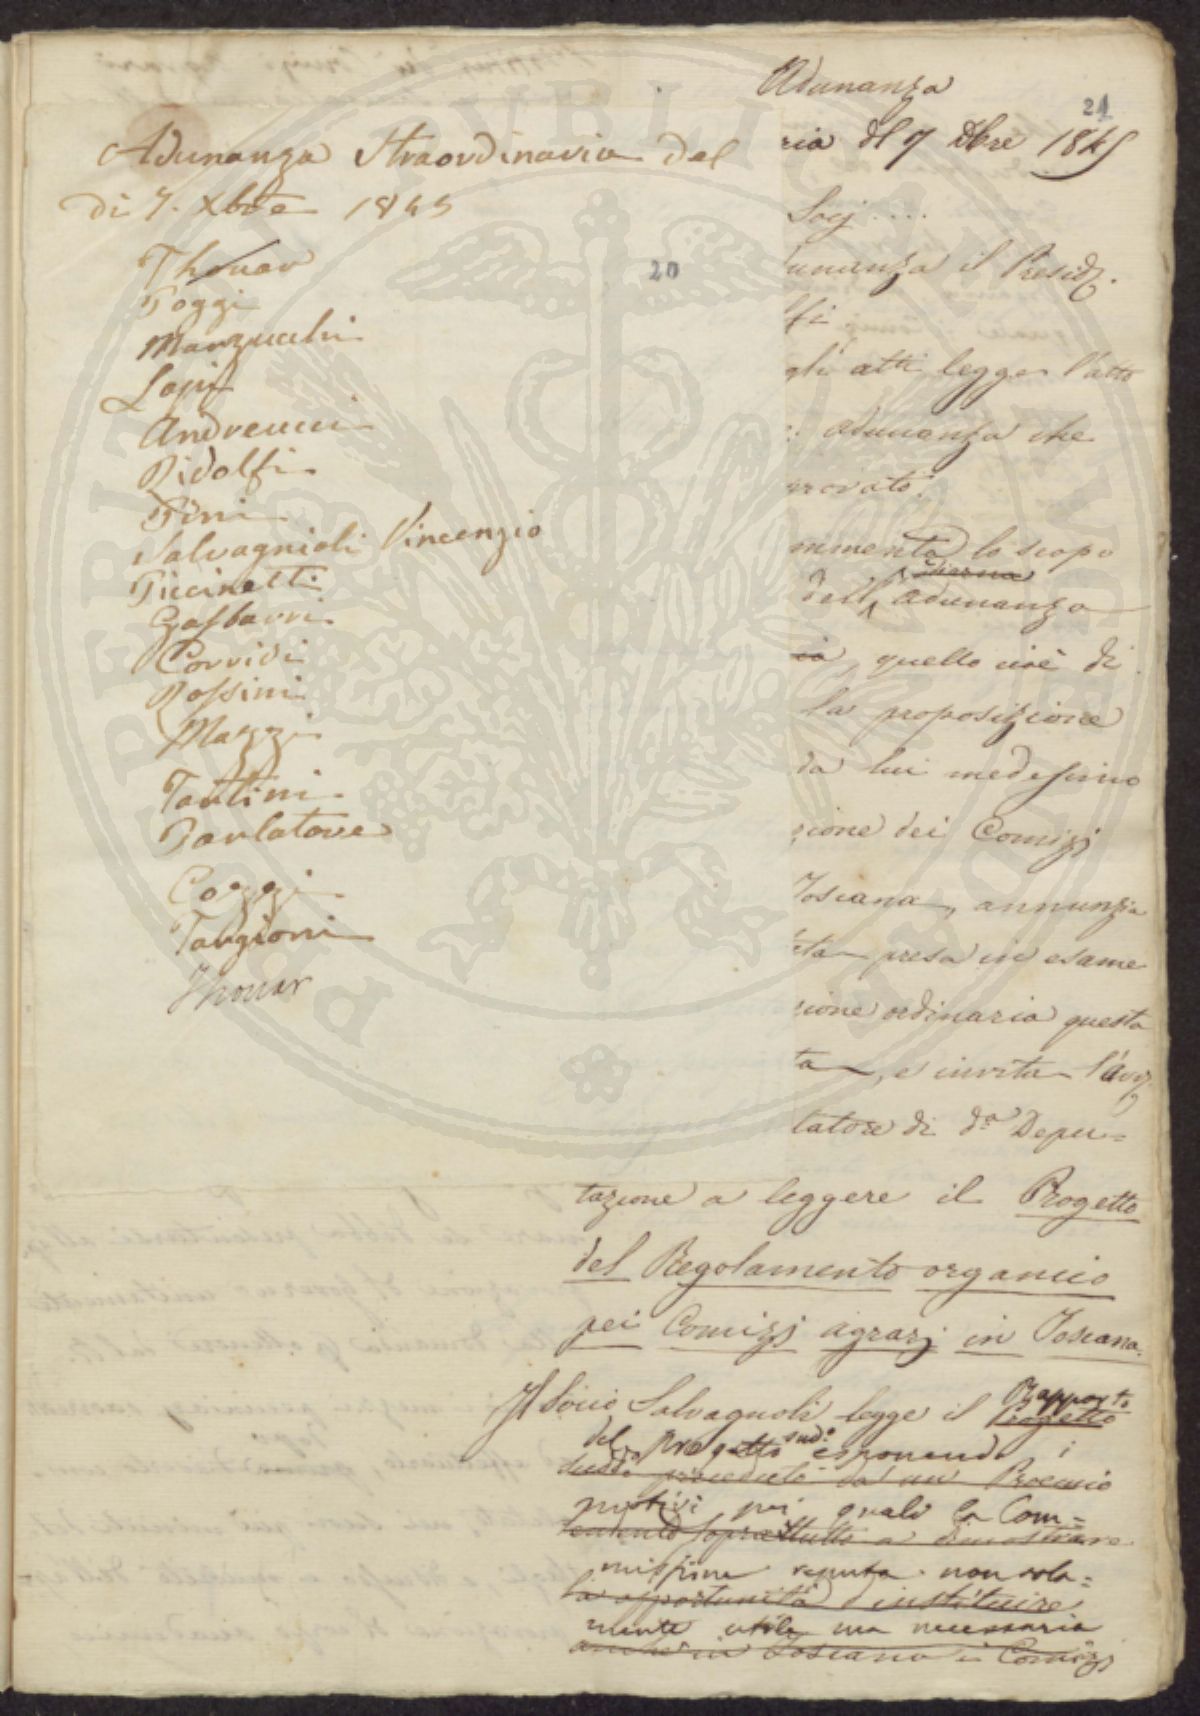 Adunanza Straordinaria del
di 7. Xbre 1845
Thouar
Poggi
Marzucchi
Lapi
Andreucci
Ridolfi
Pini
Salvagnioli Vincenzio
Piccinetti
Gasbarri
Corridi
Rossini
Mazzi
Tartini
Parlatore
Cozzi
Targioni
Thouar
20
Adunanza
21
ria del 7 Xbre 1845
Socj ....
unanza il Presid.
lfi
gli atti legge l'atto
adunanza che
rovato.
mmenta lo scopo
dell' adunanza
ia, quello cioè di
la proposizione
da lui medesimo
zione dei Comizj
Toscana, annunzia
ta presa in esame
zione ordinaria questa
ta, e invita l'Avv.
latore di da Depu=
tazione a leggere il Progetto
del Regolamento organico
pei Comizj agrarj in Toscana.
Il Socio Salvagnoli legge il Rapporto
Progetto
del Progetto sudo esponendo i
preceduto da un Proemio
motivi pei quali la Com=
soprattutto a dimostrare
missione reputa non sola=
la opportunità d'instituire
mente utile ma necessaria
anche in Toscana i Comizj
PUBLICA